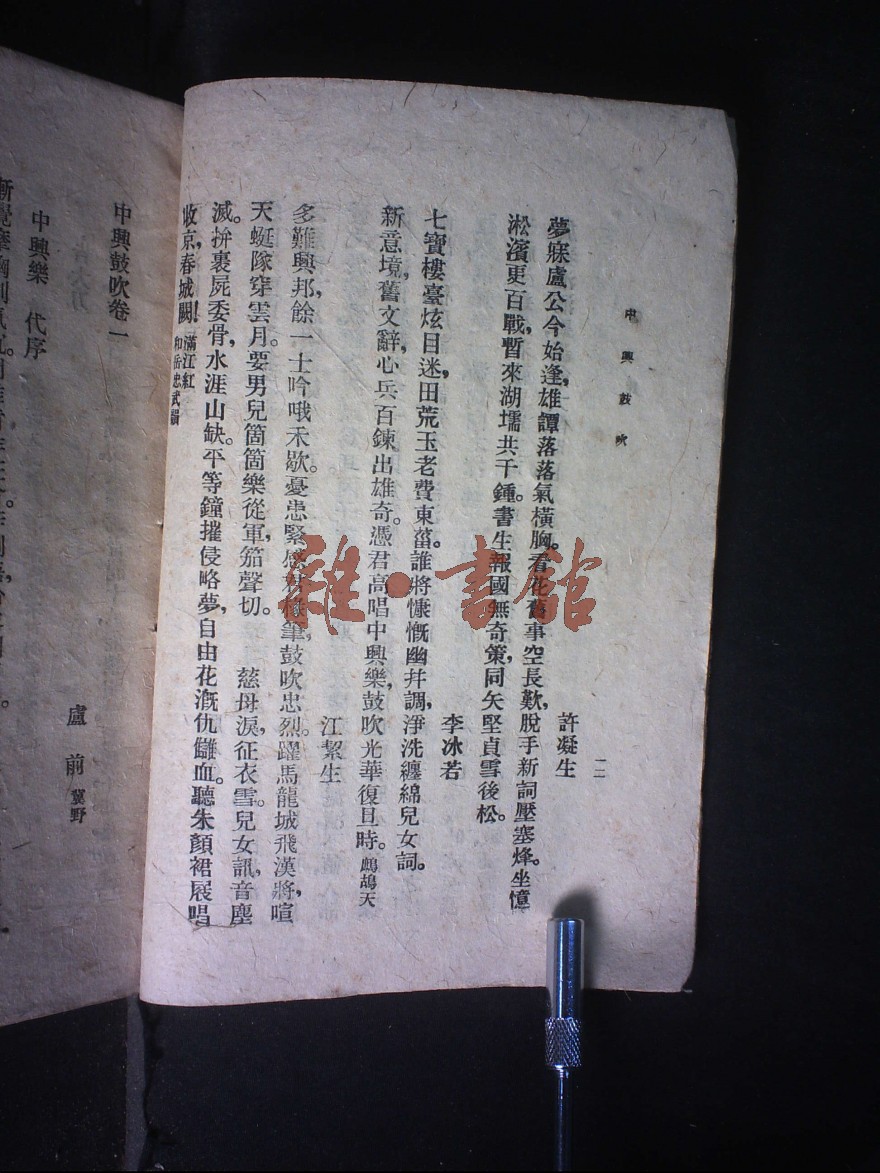 中興鼓吹
二
許凝生
夢寐盧公今始逢,雄譚落落氣橫胸。看花舊事空長歎,脫手新詞壓塞烽。坐憶
淞濱更百戰,暫來湖壖共千鍾。書生報國無奇策,同矢堅貞雪後松。
李冰若
七寶樓臺炫目迷,田荒玉老費東菑。誰將慷慨幽并調,淨洗纏綿兒女詞。
新意境,舊文辭,心兵百鍊出雄奇。憑君高唱中興樂,鼓吹光華復旦時。鷓鴣天
江絜生
多難興邦,餘一士吟哦未歇。憂患緊,感君椽筆,鼓吹忠烈。躍馬龍城飛漢將,喧
天蜓隊穿雲月。要男兒箇箇樂從軍,笳聲切。 慈母淚,征衣雪。兒女訊,音塵
滅。拚裹屍委骨,水涯山缺。平等鐘摧侵略夢,自由花溉仇讎血。聽朱顏裙屐唱
收京,春城闕!滿江紅和岳忠武韻
中興鼓吹卷一
盧前冀野
中興樂 代序
雜·書館